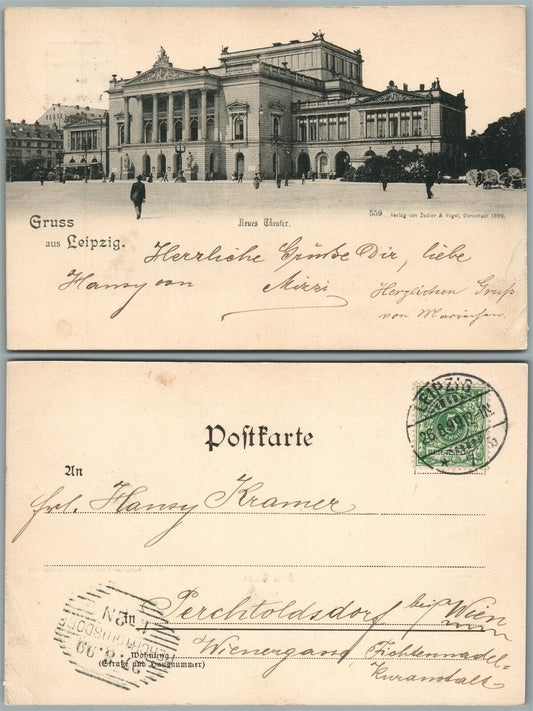 Gruss
aus Leipzig.
Neues Theater.
559 Verlag von Zedler & Vogel, Darmstadt 1899.
Herrliche Grüße Dir, liebe
Hansy von Mizzi
Herzlichen Gruß
von Mariechen.
Postkarte
LEIPZIG
26.8.99
An
Frl. Hansy Kramer
in Perchtoldsdorf bei Wien
Wienergasse Fichtennadel-
Kuranstalt
Wohnung
(Straße und Hausnummer)
8.99